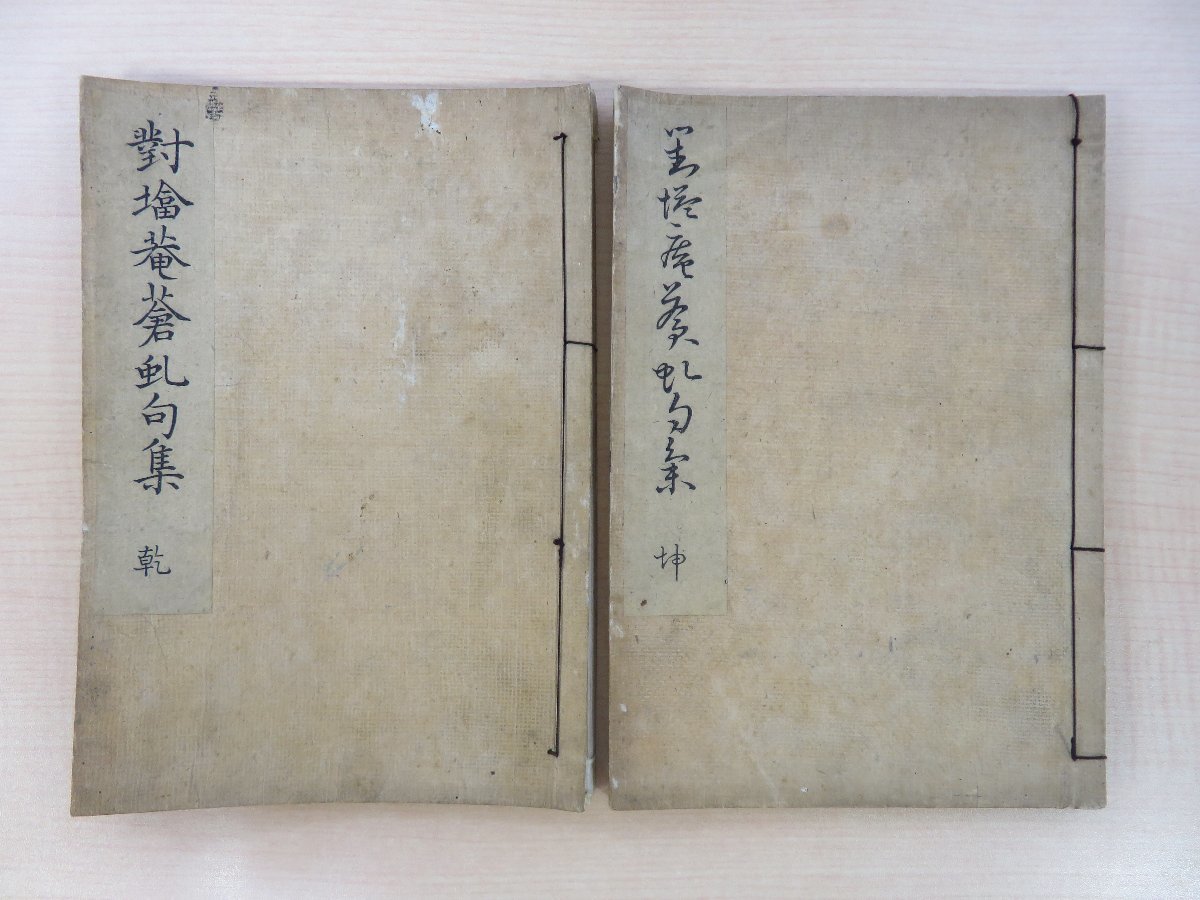 對塔菴蒼虬句集 乾
對塔庵蒼虬句集 坤